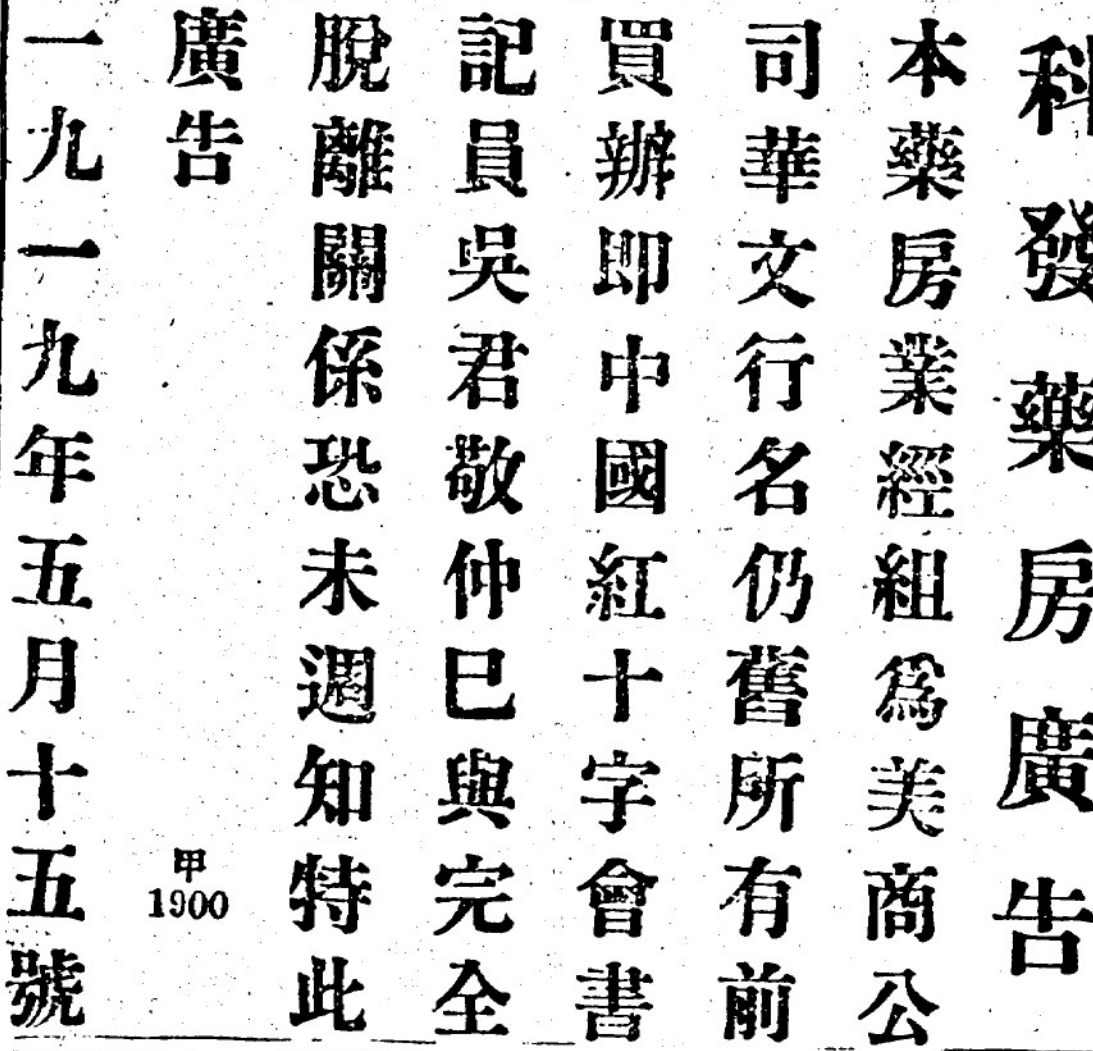 科發藥房廣告
本藥房業經組爲美商公
司華文行名仍舊所有前
買辦即中國紅十字會書
記員吳君敬仲巳與完全
脫離關係恐未週知特此
廣告
甲
1900
一九一九年五月十五號